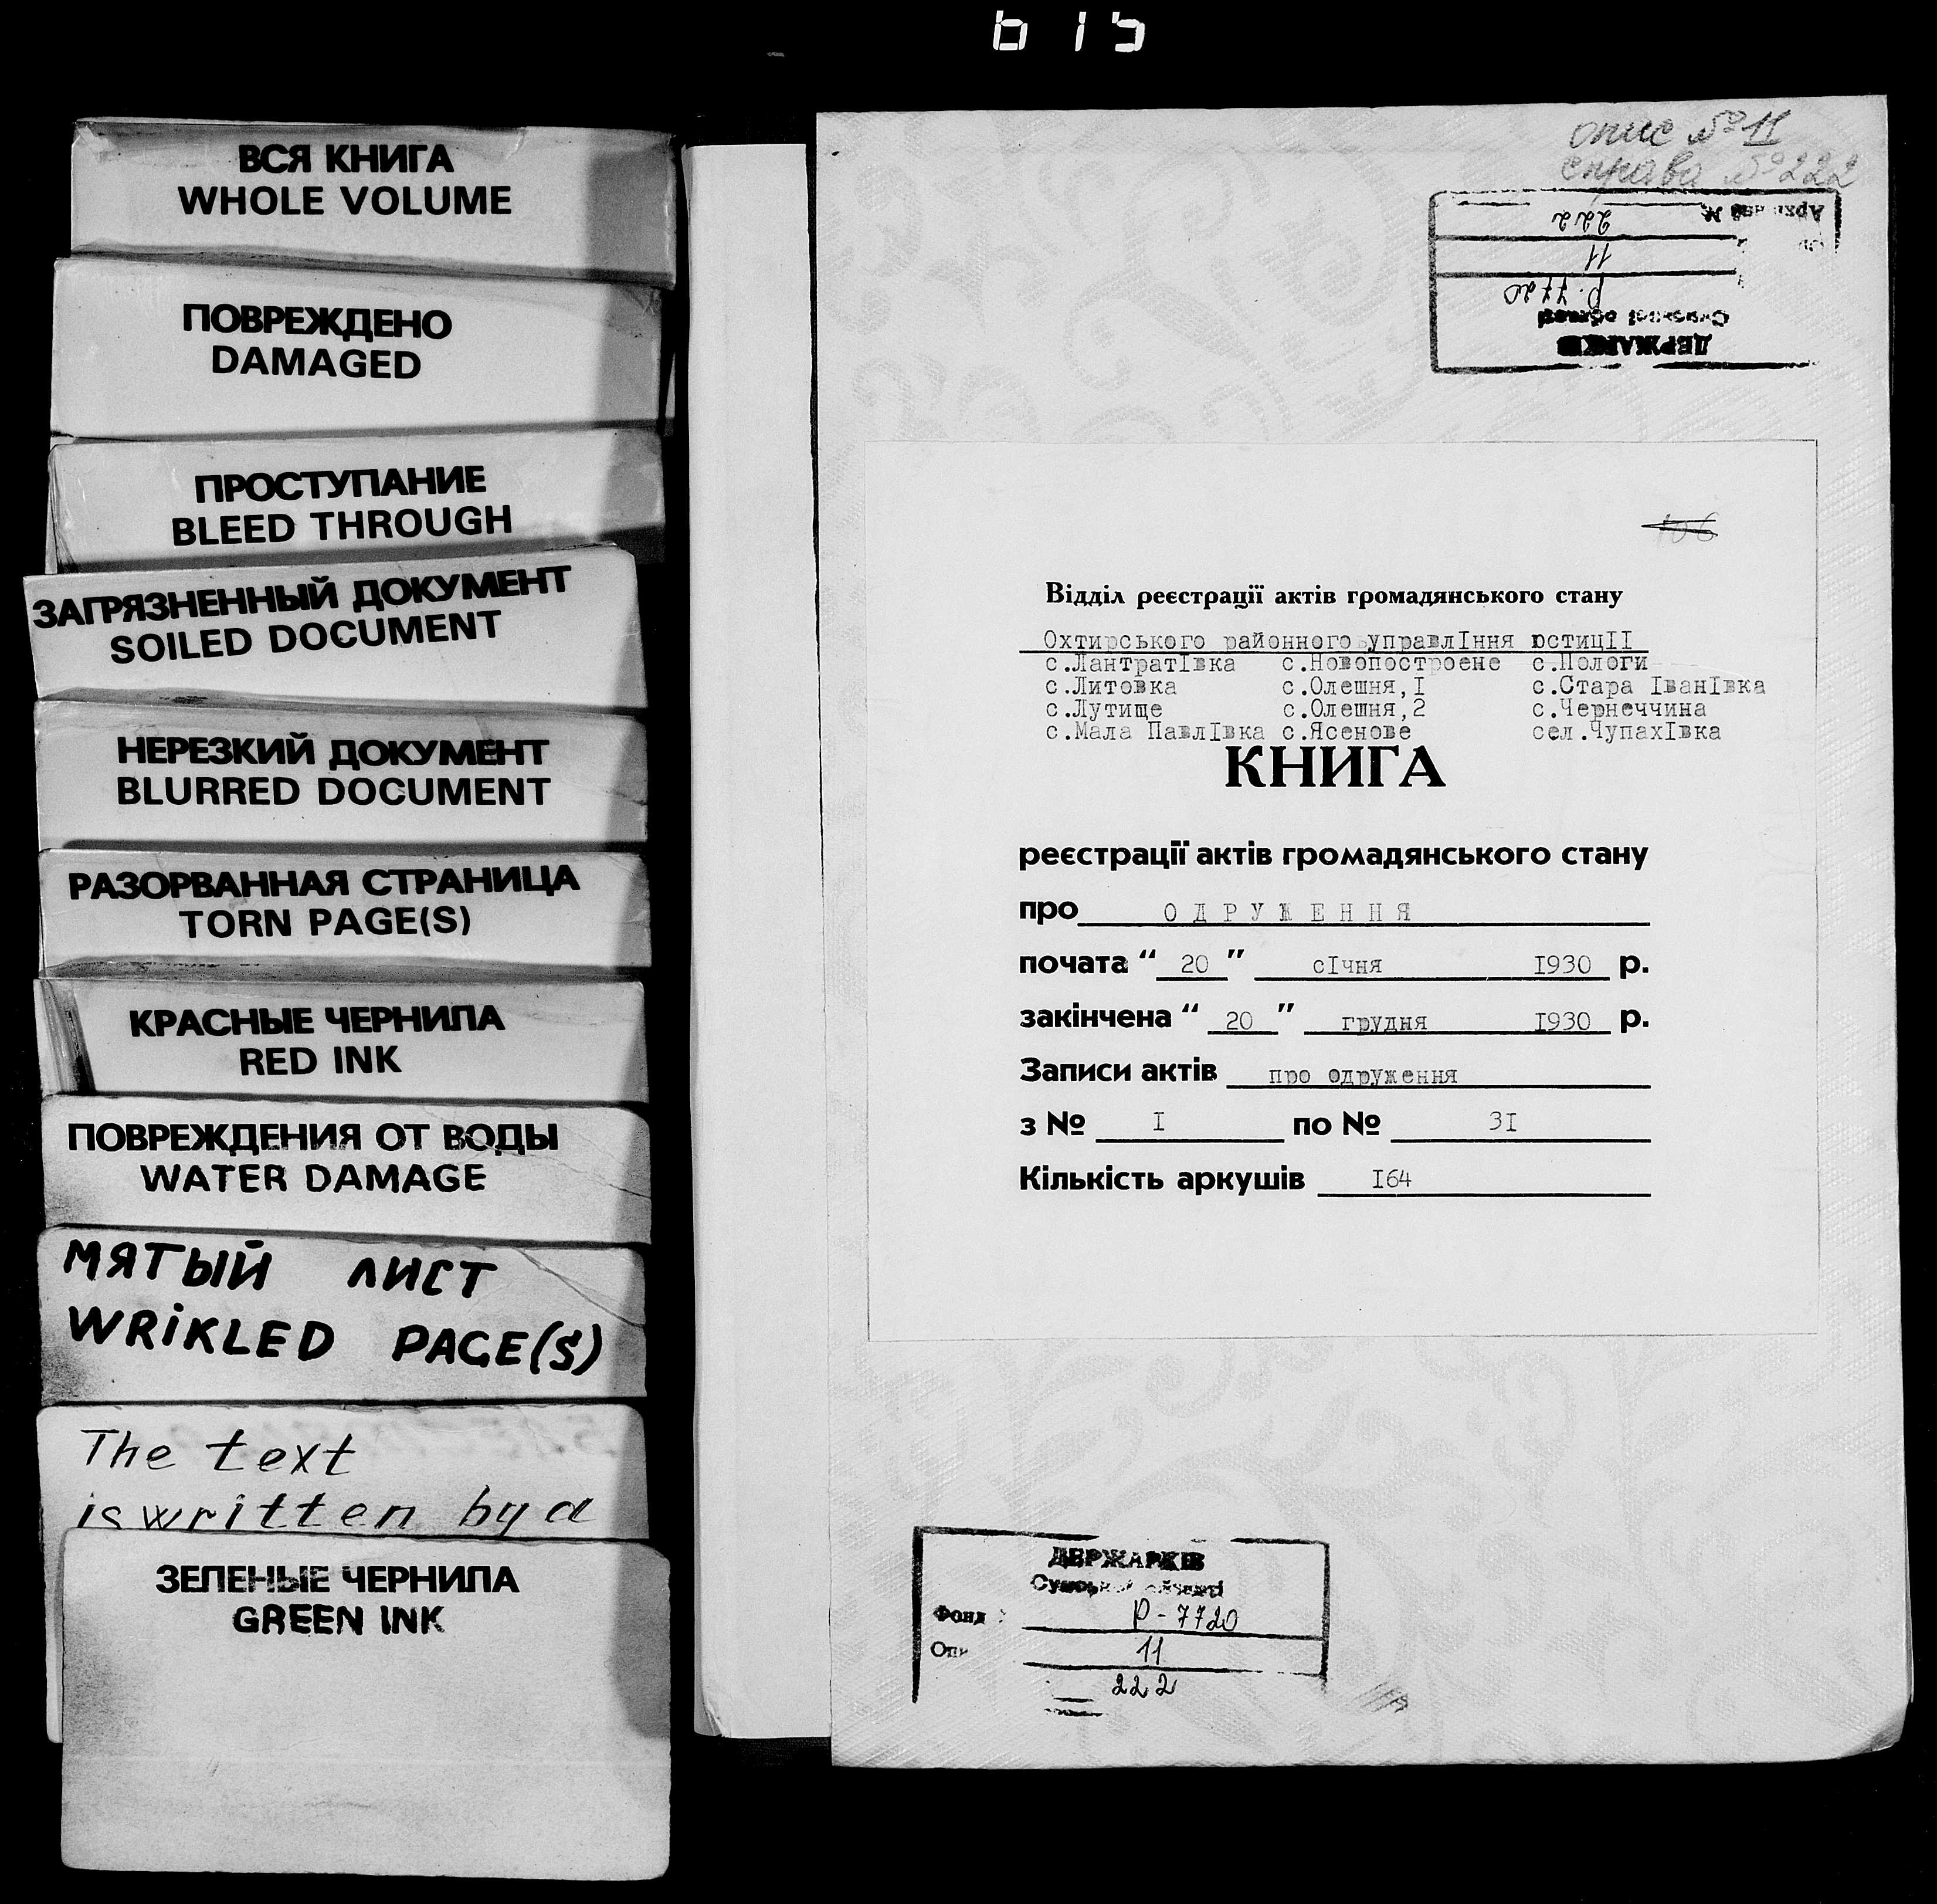 615
ВСЯ КНИГА
WHOLE VOLUME
ПОВРЕЖДЕНО
DAMAGED
ПРОСТУПАНИЕ
BLEED THROUGH
ЗАГРЯЗНЕННЫЙ ДОКУМЕНТ
SOILED DOCUMENT
НЕРЕЗКИЙ ДОКУМЕНТ
BLURRED DOCUMENT
РАЗОРВАННАЯ СТРАНИЦА
TORN PAGE(S)
КРАСНЫЕ ЧЕРНИЛА
RED INK
ПОВРЕЖДЕНИЯ ОТ ВОДЫ
WATER DAMAGE
МЯТЫЙ ЛИСТ
WRIKLED PAGE(S)
The text
is written by a
ЗЕЛЕНЫЕ ЧЕРНИЛА
GREEN INK
опис №11
справа №222
ДЕРЖАРХІВ
Сумської області
Р-7720
11
222
106
Відділ реєстрації актів громадянського стану
Охтирського районного управлІння юстицІІ
с.ЛантратІвка с.Новопостроене с.Пологи
с.Литовка с.Олешня,І с.Стара ІванІвка
с.Лутище с.Олешня,2 с.Чернеччина
с.Мала ПавлІвка с.Ясенове сел.ЧупахІвка
КНИГА
реєстрації актів громадянського стану
про ОДРУЖЕННЯ
почата “ 20 ” сІчня І930 р.
закінчена “ 20 ” грудня І930 р.
Записи актів про одруження
з № І по № 3І
Кількість аркушів І64
ДЕРЖАРХІВ
Сумської області
Фонд Р-7720
11
222